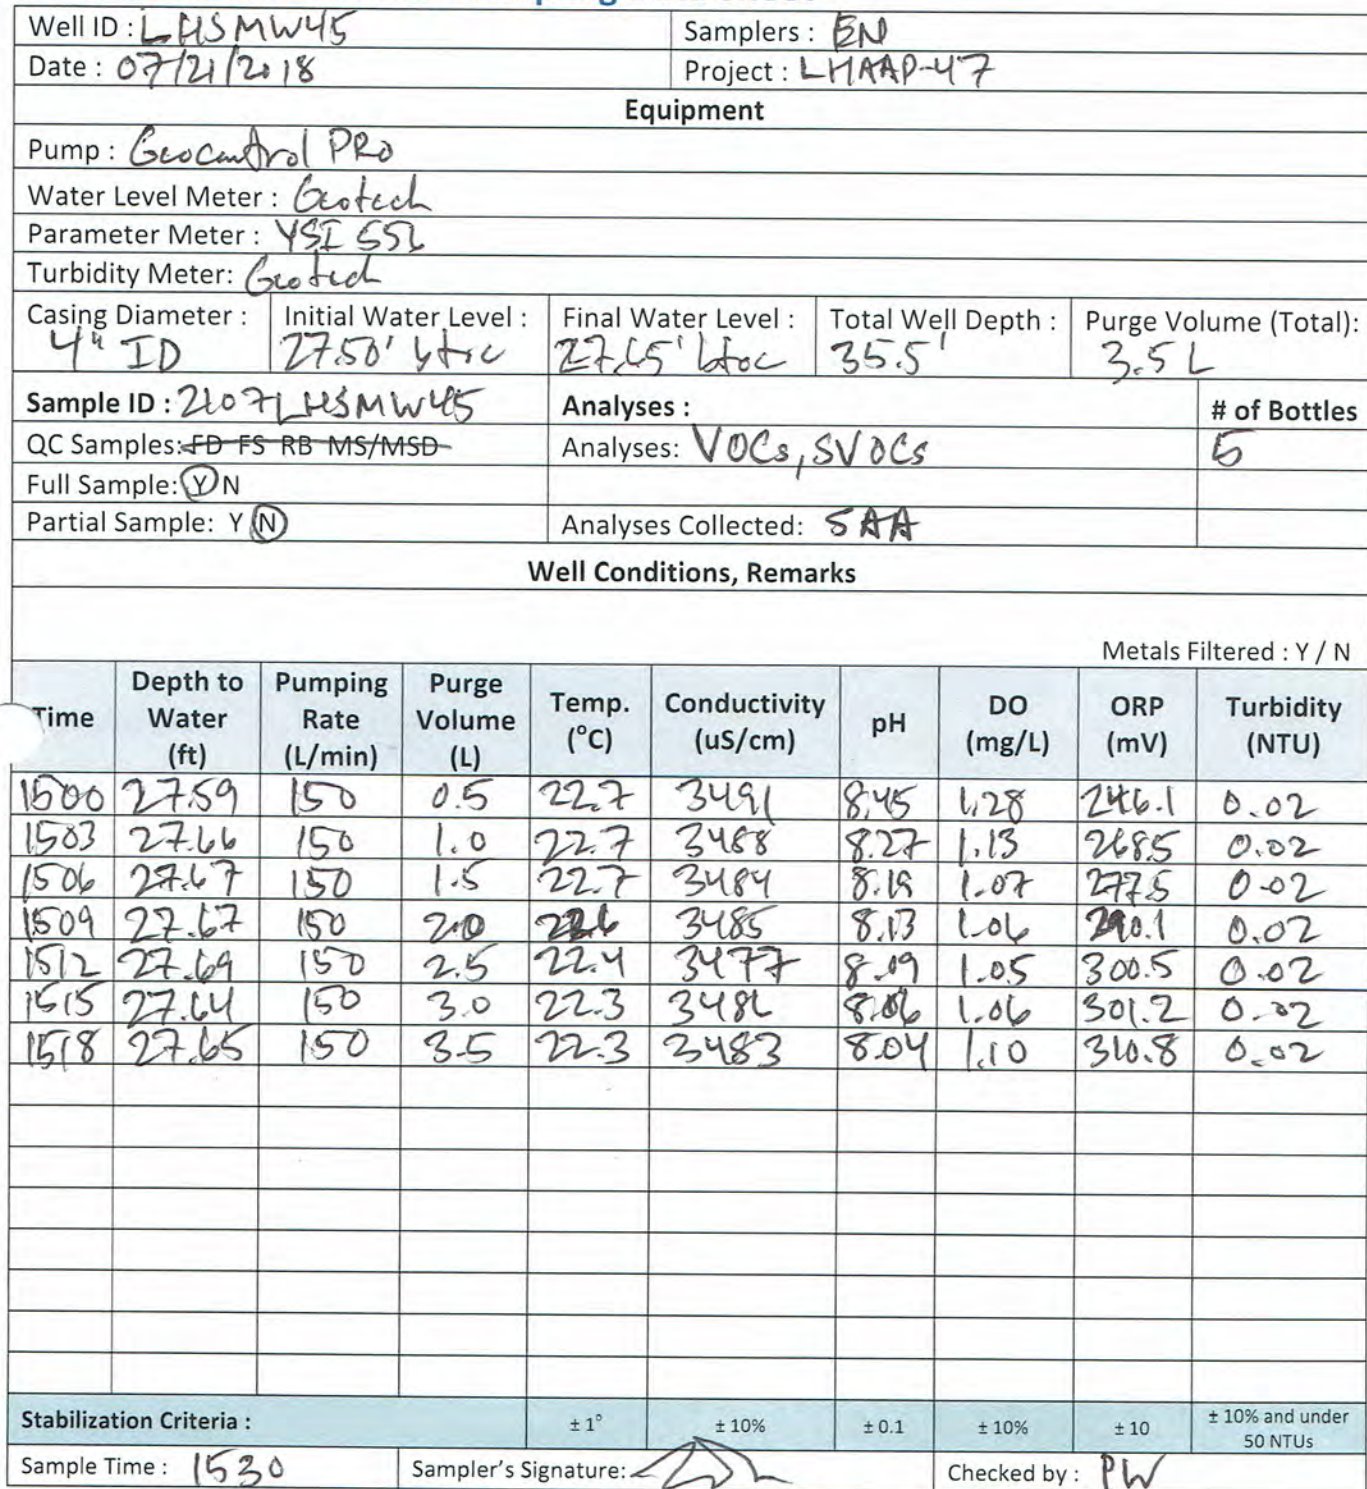 Well ID : LHSMW45 Samplers : EN
Date : 07/21/2018 Project : LHAAP-47
Equipment
Pump : Geocontrol PRO
Water Level Meter : Geotech
Parameter Meter : YSI 556
Turbidity Meter: Geotech
Casing Diameter : Initial Water Level : Final Water Level : Total Well Depth : Purge Volume (Total):
4" ID 27.50' btoc 27.65' btoc 35.5' 3.5 L
Sample ID : 2107LHSMW45 Analyses : # of Bottles
QC Samples: FD FS RB MS/MSD Analyses: VOCs, SVOCs 5
Full Sample: Y N
Partial Sample: Y N Analyses Collected: SAA
Well Conditions, Remarks
Metals Filtered : Y / N
Time Depth to Water (ft) Pumping Rate (L/min) Purge Volume (L) Temp. (°C) Conductivity (uS/cm) pH DO (mg/L) ORP (mV) Turbidity (NTU)
1500 27.59 150 0.5 22.7 3491 8.45 1.28 246.1 0.02
1503 27.66 150 1.0 22.7 3488 8.27 1.13 268.5 0.02
1506 27.67 150 1.5 22.7 3484 8.18 1.07 277.5 0.02
1509 27.67 150 2.0 22.6 3485 8.13 1.06 290.1 0.02
1512 27.69 150 2.5 22.4 3477 8.09 1.05 300.5 0.02
1515 27.64 150 3.0 22.3 3486 8.06 1.06 301.2 0.02
1518 27.65 150 3.5 22.3 3483 8.04 1.10 310.8 0.02
Stabilization Criteria : ± 1° ± 10% ± 0.1 ± 10% ± 10 ± 10% and under 50 NTUs
Sample Time : 1530 Sampler's Signature: Checked by : PW